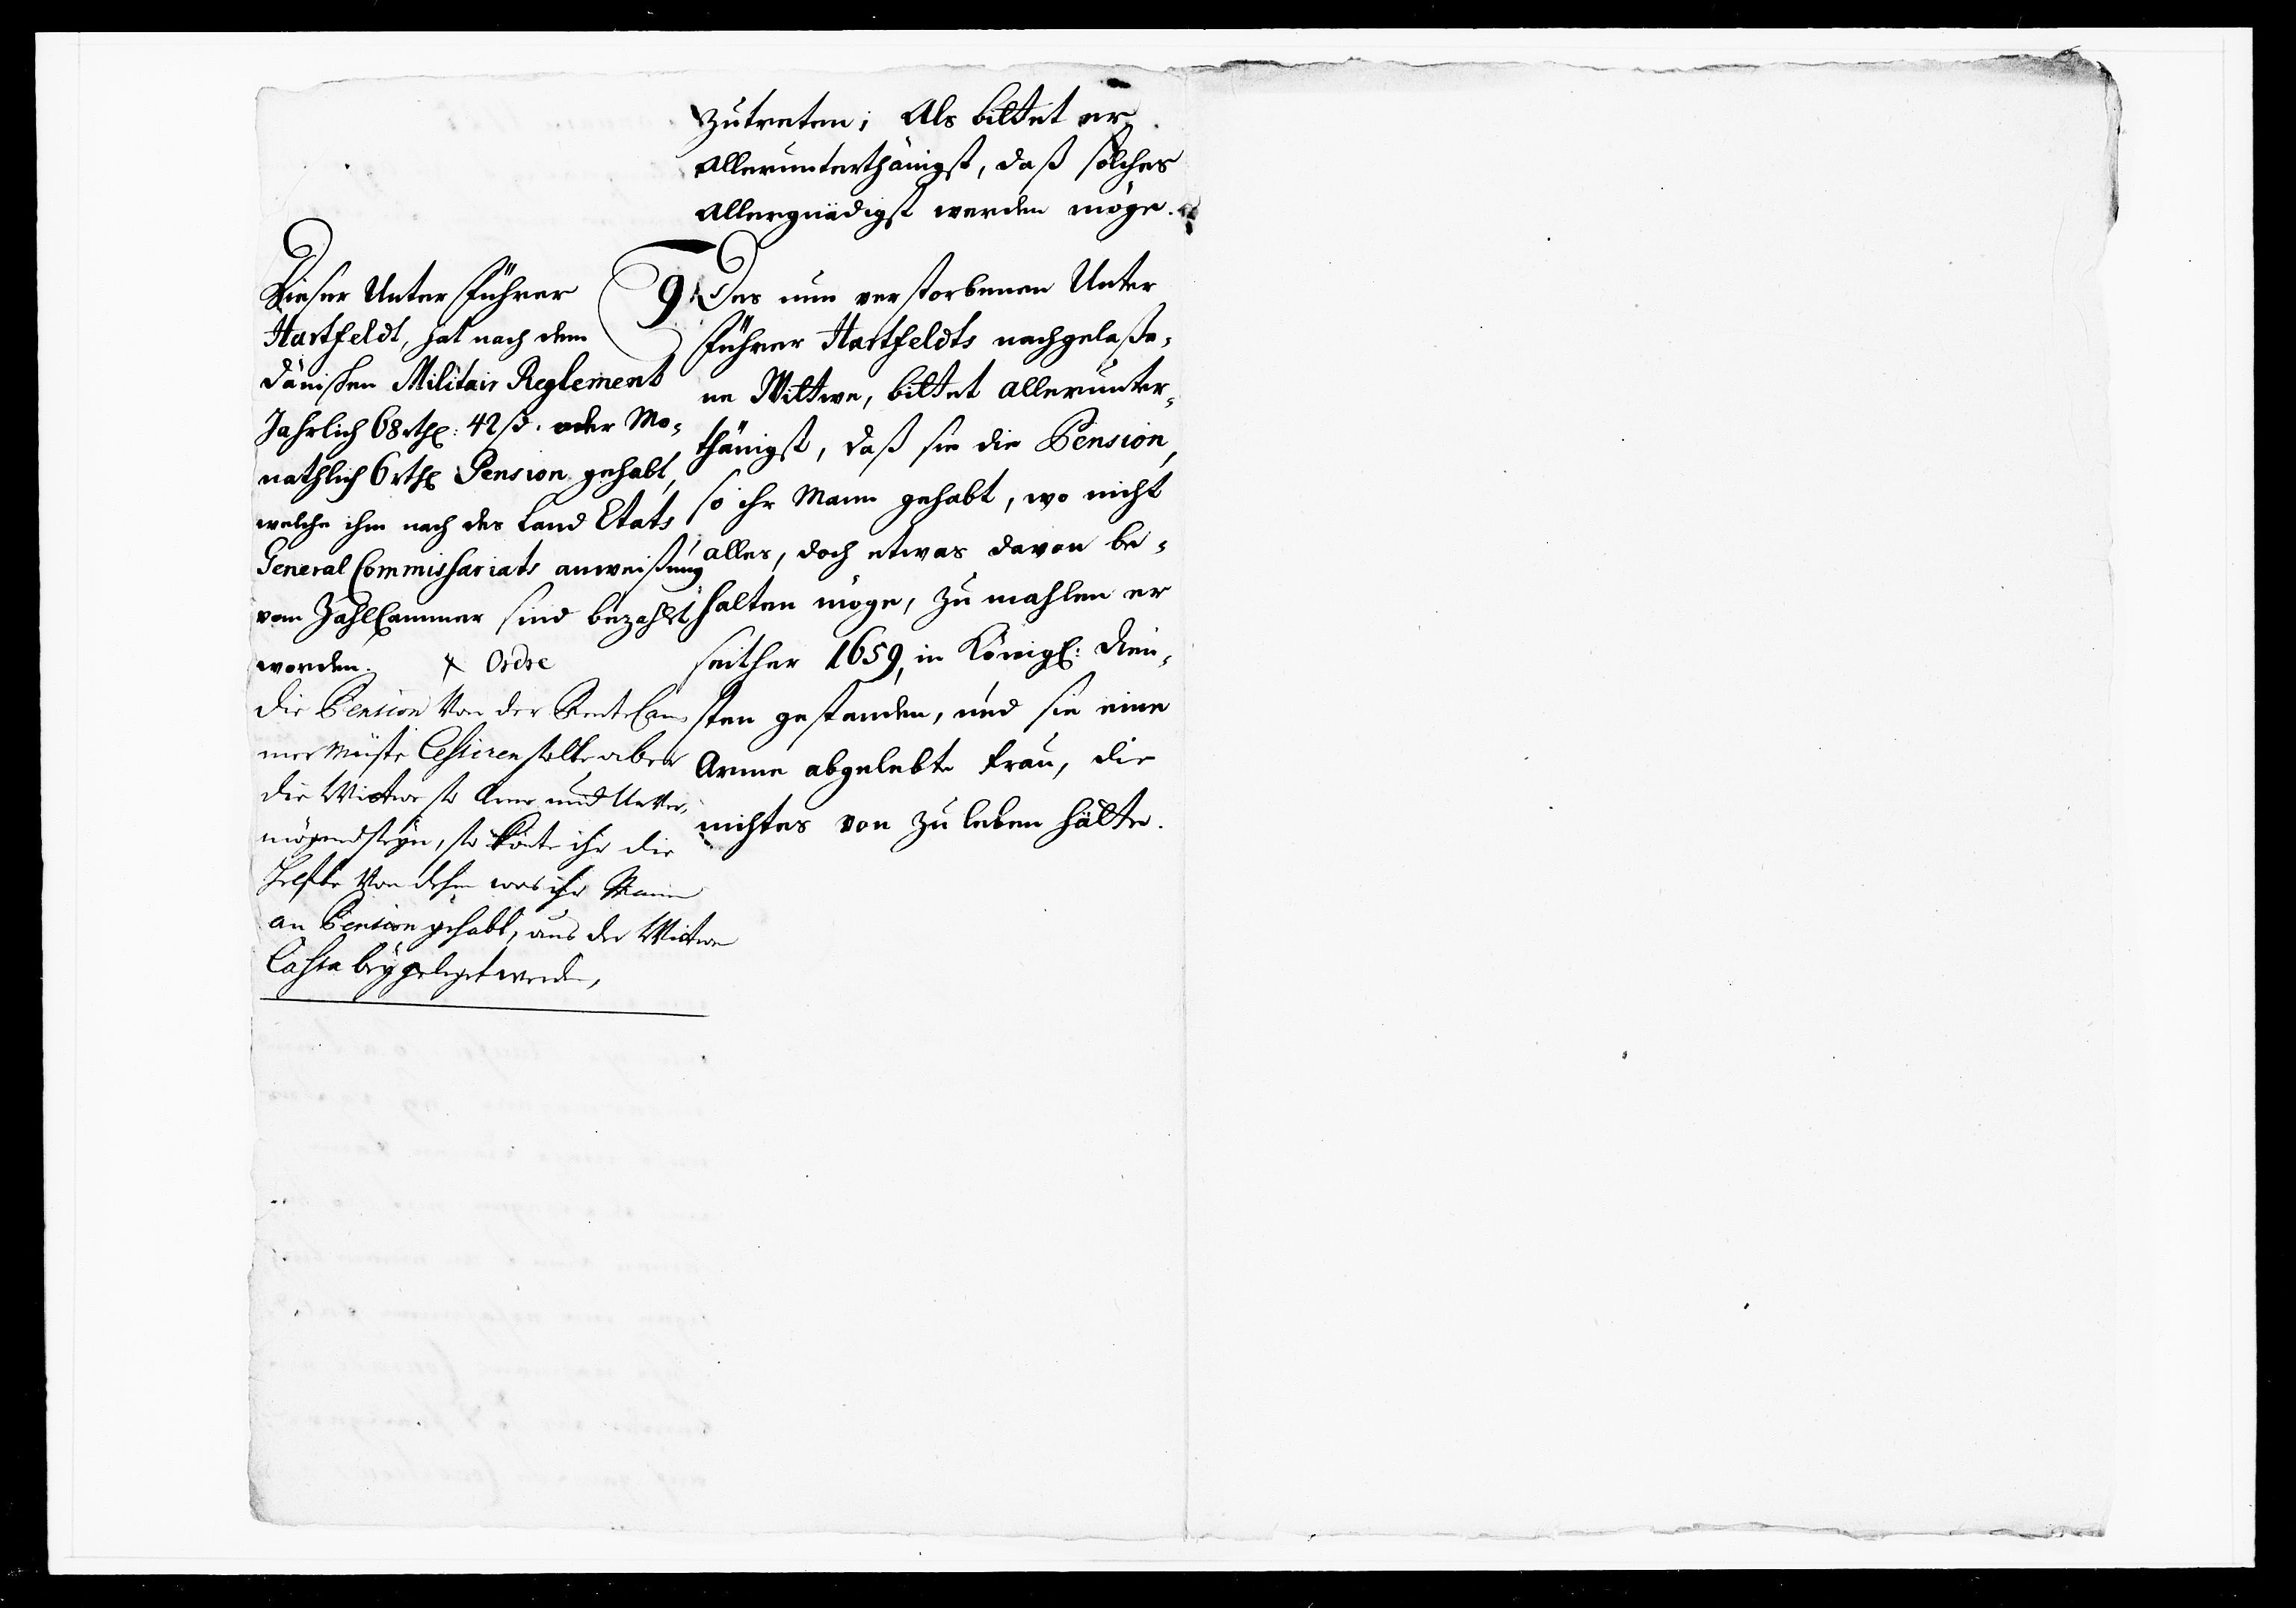 zutreten; Als bittet er
Allerunterthänigst, daß solches
Allergnädigst werden möge.
9. Des nun verstorbenen Unter
führer Hartfeldts nachgelaße-
ne Wittwe, bittet allerunter-
thänigst, daß sie die Pension,
so ihr Mann gehabt, wo nicht
alles, doch etwas davon be-
halten möge, zu mahlen er
seither 1659, in Königl: Dien-
sten gestanden, und sie eine
Arme abgelebte frau, die
nichtes von zu leben hätte.
Dieser Unter führer
Hartfeldt, hat nach dem
dänischen Militair Reglement
Jahrlich 68 rthl: 42 ß. oder Mo-
nathlich 6 rthl Pension gehabt,
welche ihm nach des Land Etats
General Commissariats anweisung
vom Zahl Cammer sind bezahlt
worden. Ordre
die Pension von der Rente Cam-
mer müste Cessiren solte aber
die Wittwe so Arm und Unver-
mögend seyn, so könte ihr die
Helfte von dehm was ihr Mann
an Pension gehabt, aus der Wittwe
Cassa beygeleget werden,